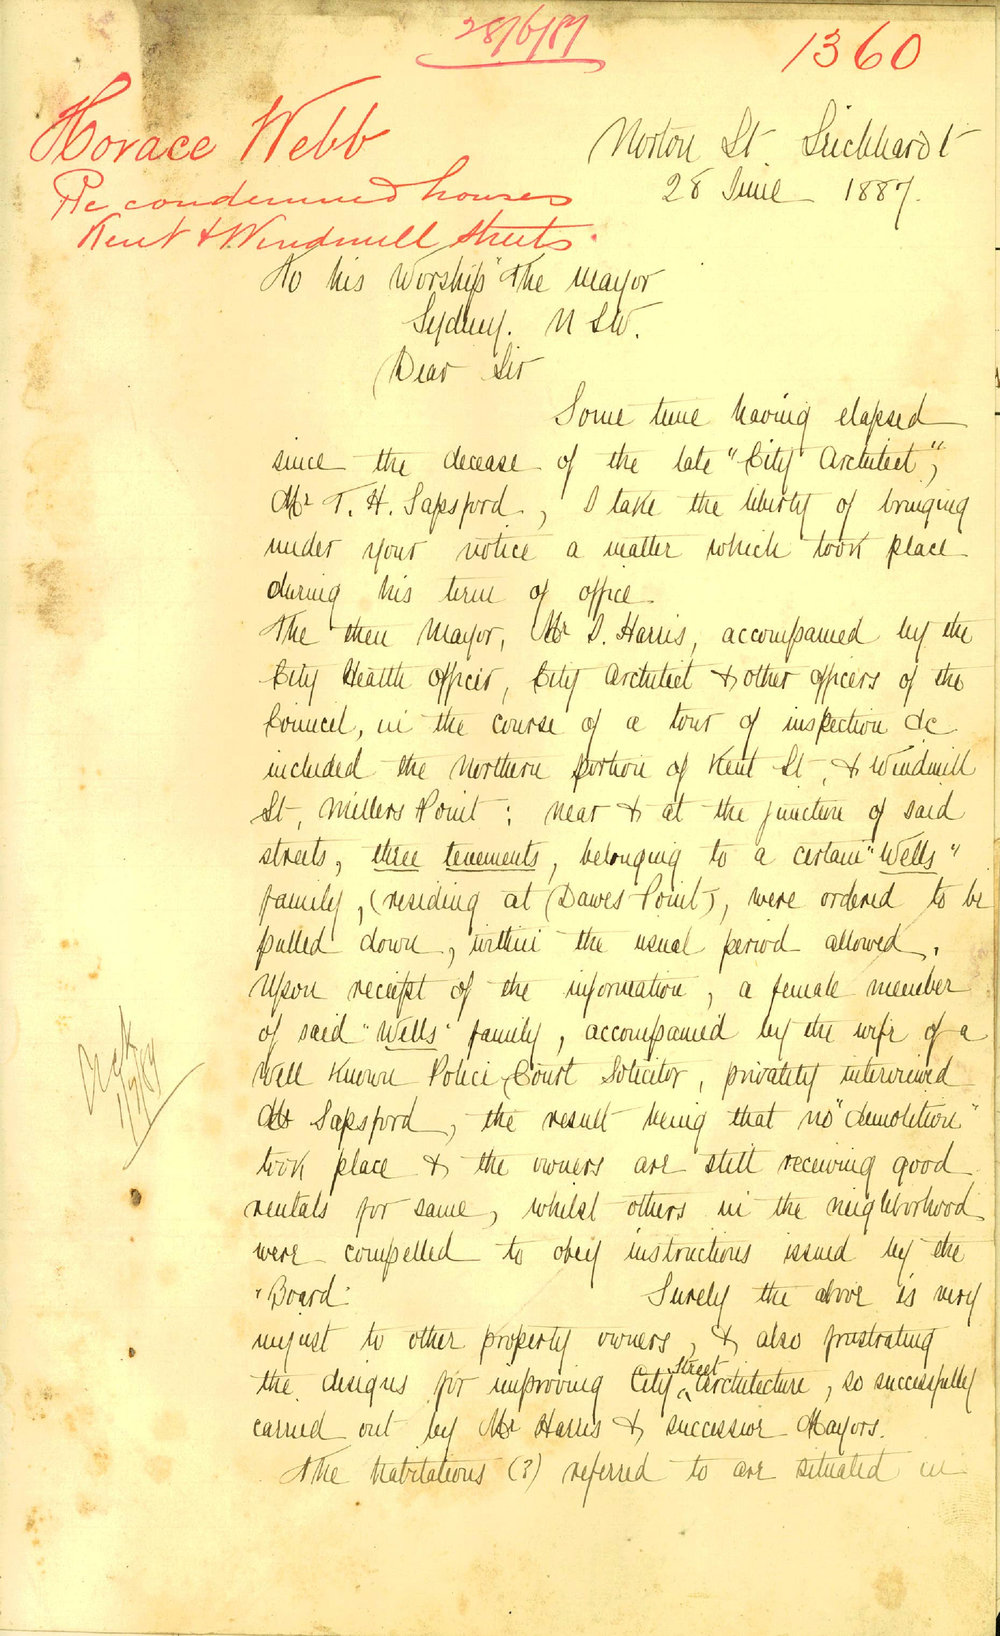 28/6/87
1360
Horace Webb
Re condemned houses
Kent & Windmill Streets.
Norton St. Leichhardt
28 June 1887.
To his Worship "The Mayor
Sydney. N S W.
Dear Sir
Some time having elapsed
since the decease of the late "City Architect",
Mr T. H. Sapsford, I take the liberty of bringing
under your notice a matter which took place
during his term of office
The then Mayor, Mr J. Harris, accompanied by the
City Health Officer, City Architect & other officers of the
Council, in the course of a tour of inspection &c
included the Northern portion of Kent St, & Windmill
St, Millers Point; near & at the junction of said
streets, three tenements, belonging to a certain "Wells"
family, (residing at Dawes Point), were ordered to be
pulled down, within the usual period allowed.
Upon receipt of the information, a female member
of said "Wells" family, accompanied by the wife of a
well known Police Court Solicitor, privately interviewed
Mr Sapsford, the result being that no "demolition"
took place & the owners are still receiving good
rentals for same, whilst others in the neighborhood
were compelled to obey instructions issued by the
"Board" Surely the above is very
unjust to other property owners, & also frustrating
the designs for improving City Street Architecture, so successfully
carried out by Mr Harris & successive Mayors.
The habitations (?) referred to are situated in
11/7/87